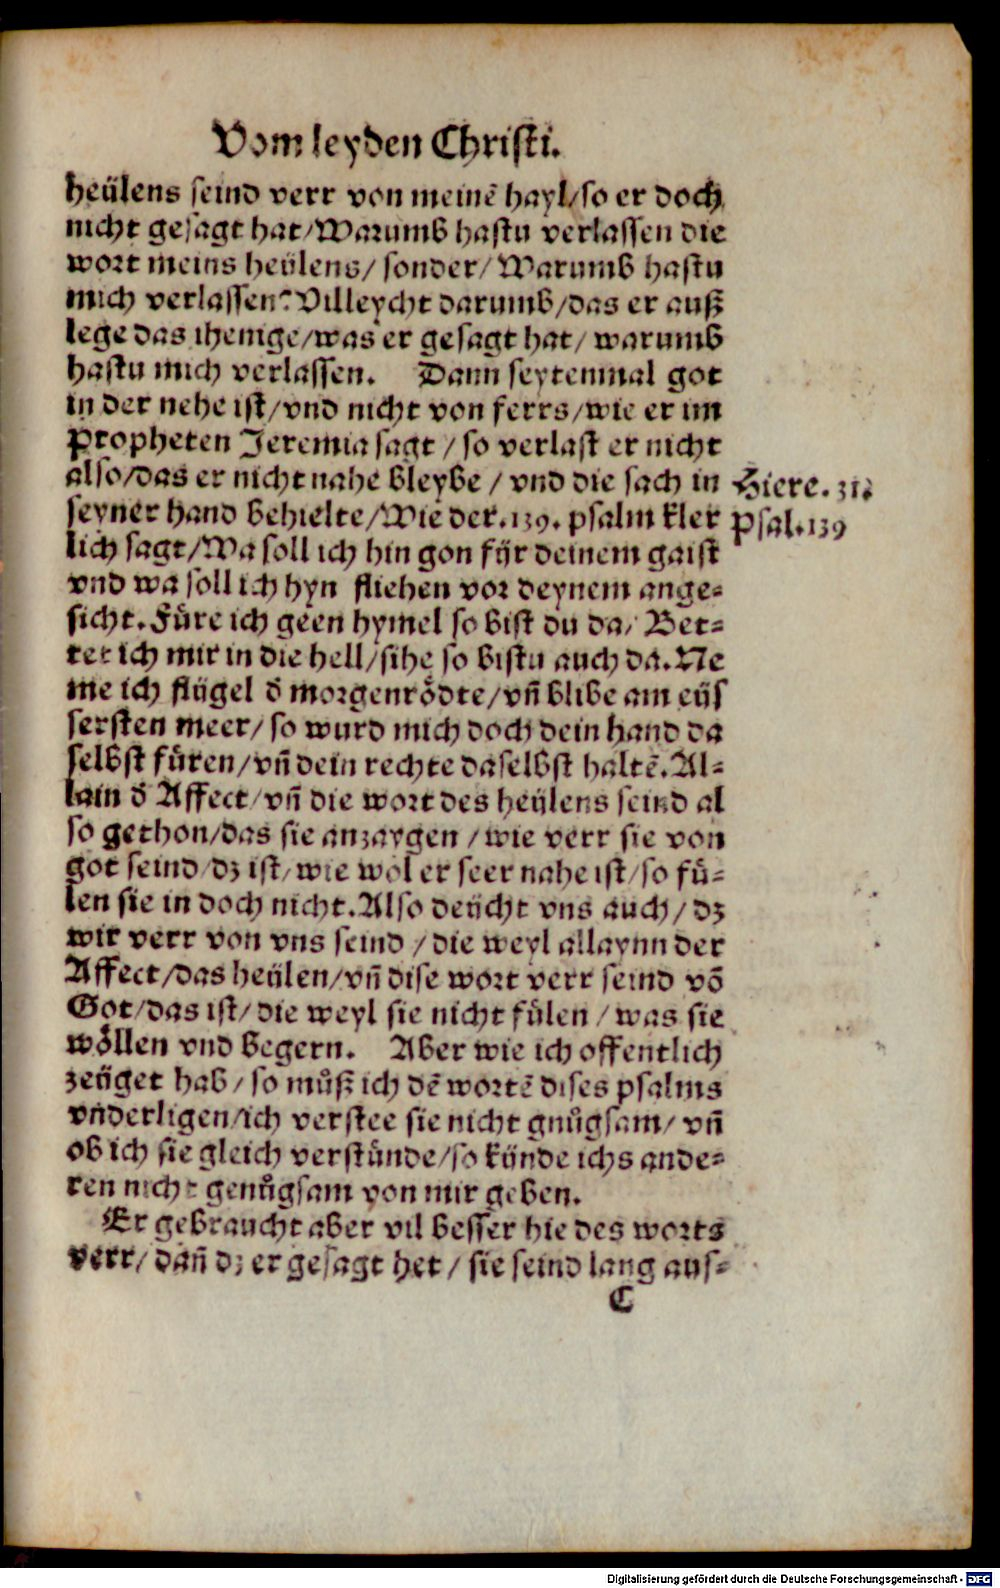 Vom leyden Christi.
heülens seind verr von meinē hayl/so er doch
nicht gesagt hat/Warumb hastu verlassen die
wort meins heülens/ sonder/ Warumb hastu
mich verlassen? Villeycht darumb/das er auß
lege das ihenige/was er gesagt hat/ warumb
hastu mich verlassen. Dann seytenmal got
in der nehe ist/vnd nicht von ferrs/wie er im
Propheten Jeremia sagt / so verlast er nicht
also/das er nicht nahe bleybe / vnd die sach in
Hiere. 31.
seyner hand behielte/Wie der .139. psalm kler
Psal. 139
lich sagt/Wa soll ich hin gon für deinem gaist
vnd wa soll ich hyn fliehen vor deynem ange-
sicht. Füre ich geen hymel so bist du da/ Bet-
tet ich mir in die hell/sihe so bistu auch da. Ne
me ich flügel d̄ morgenrödte/vn̄ blibe am eüs
sersten meer/ so wurd mich doch dein hand da
selbst füren/vn̄ dein rechte daselbst haltē. Al-
lain d̄ Affect/vn̄ die wort des heülens seind al
so gethon/das sie anzaygen / wie verr sie von
got seind/dz ist/ wie wol er seer nahe ist/so fü-
len sie in doch nicht. Also deücht vns auch/ dz
wir verr von vns seind / die weyl allaynn der
Affect/das heülen/vn̄ dise wort verr seind vō
Got/das ist/ die weyl sie nicht fülen / was sie
wöllen vnd begern. Aber wie ich offentlich
zeüget hab/ so můß ich dē wortē dises psalms
vnderligen/ich verstee sie nicht gnůgsam/ vn̄
ob ich sie gleich verstünde/so künde ichs ande-
ren nicht genůgsam von mir geben.
Er gebraucht aber vil besser hie des worts
verr/ dan̄ dz er gesagt het / sie seind lang aus-
C
Digitalisierung gefördert durch die Deutsche Forschungsgemeinschaft - DFG